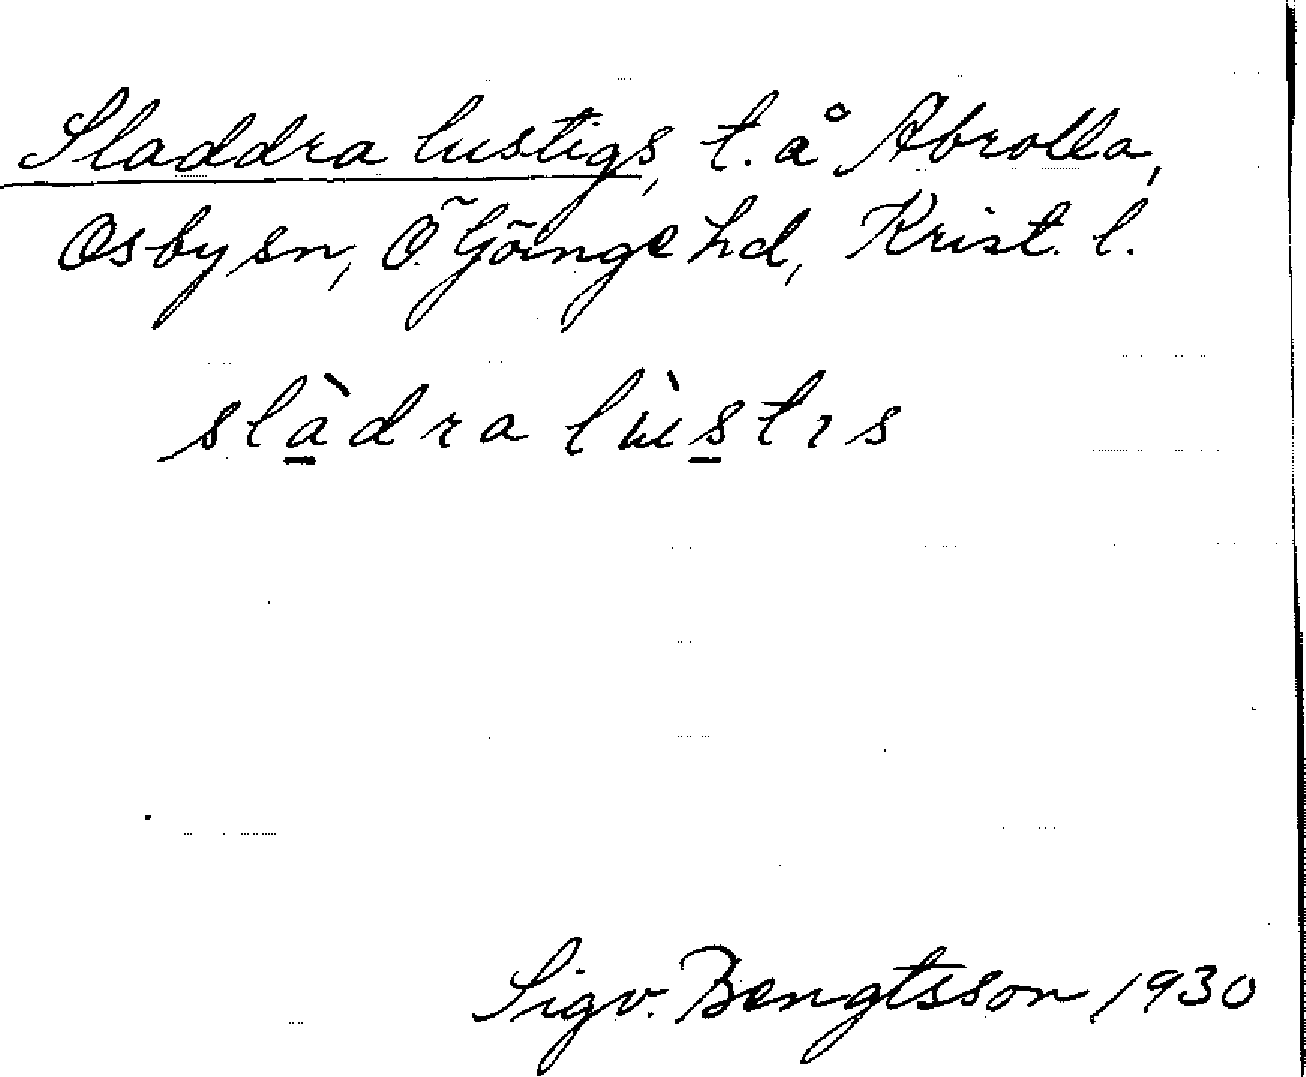 Sladdra lustigs, t. å Abrolla,
Osby sn, Ö. Göinge hd, Krist. l.
slàdra lùstıs
Sigv. Bengtsson 1930